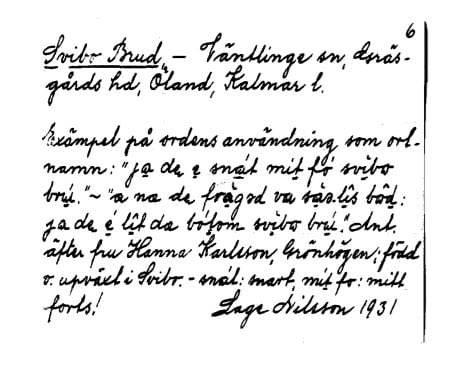 6
Svibo Brud, – Väntlinge sn, Gräs-
gårds hd, Öland, Kalmar l.
Exämpel på ordens användning som ort-
namn: "ja de e snat mit fo svibo
bru." ~ "a na de frågod va såstis båd:
ja de é lit da bótom svibo bru." Ant.
äfter fru Hanna Karlsson, Grönhögen; född
o. upväxt i Svibo. - snat: snart, mit fo: mitt
forts! Lage Nilsson 1931